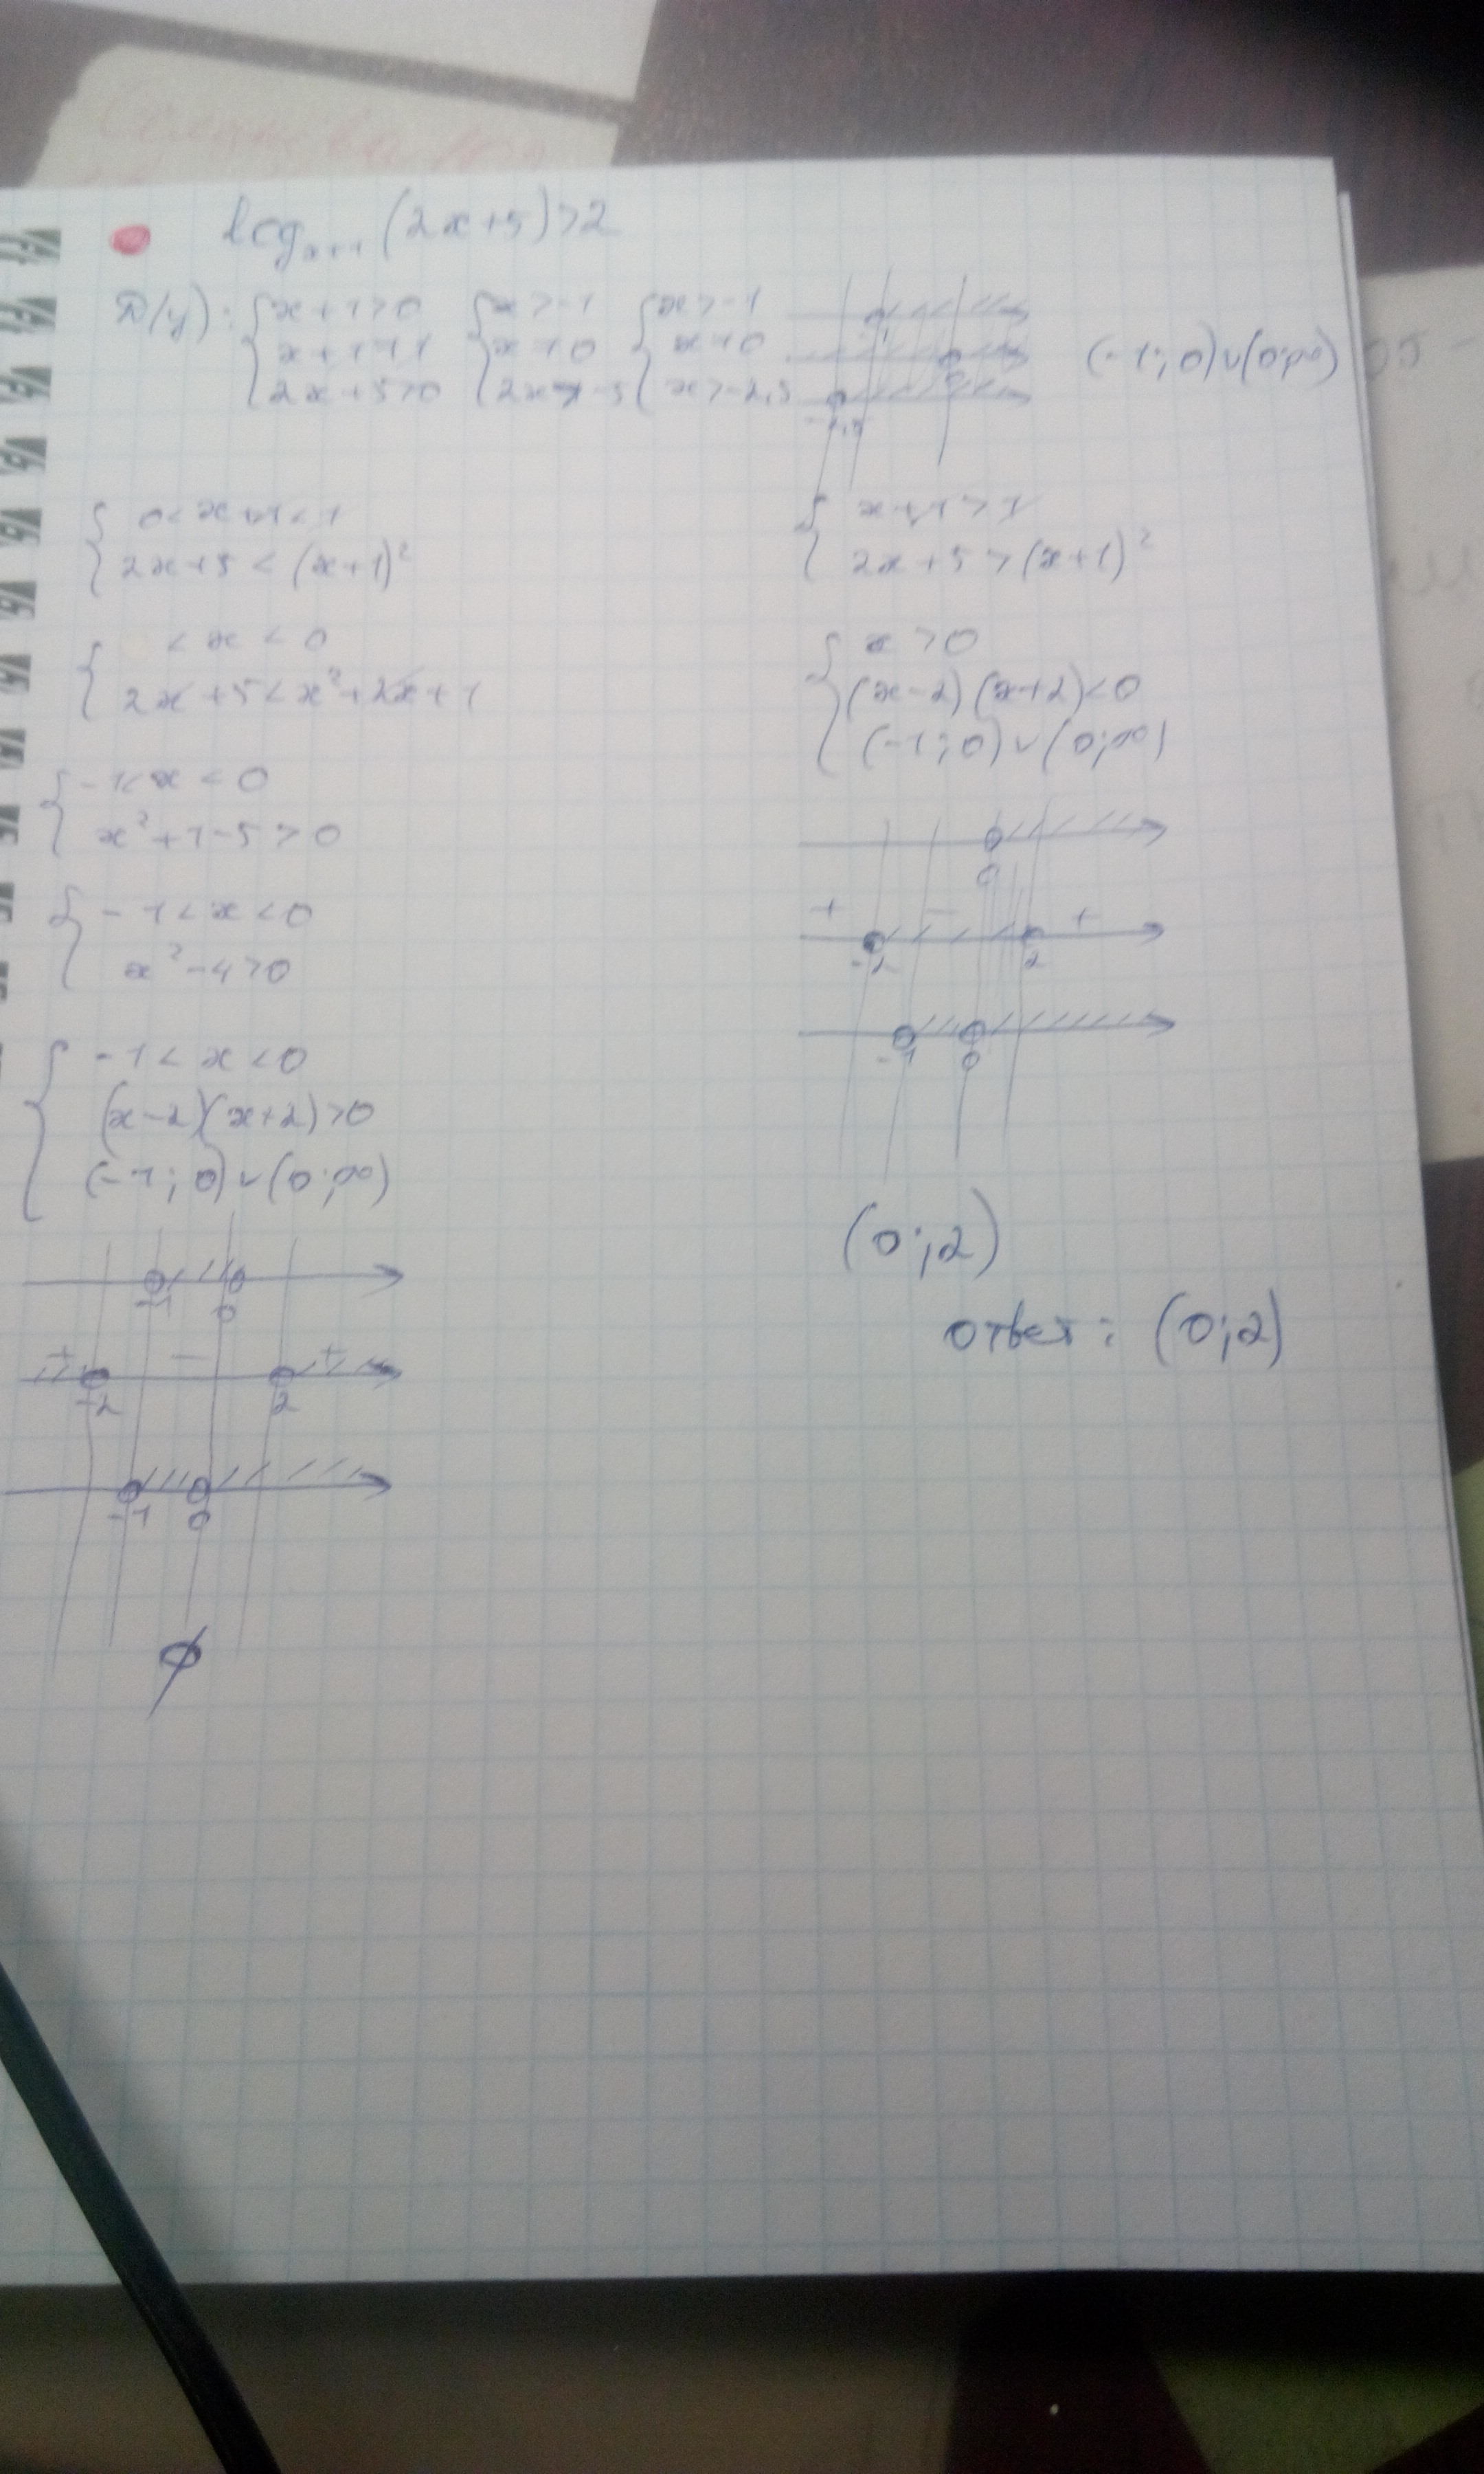 log x+1 (2x+5)>2
D(y): { x+1>0 { x>-1 { x>-1
x+1≠1 x≠0 x≠0
2x+5>0 2x>-5 x>-2,5
(-1;0)∪(0;∞)
-2,5
{ 0<x+1<1
2x+5<(x+1)²
{ <x<0
2x+5<x²+2x+1
{ -1<x<0
x²+1-5>0
{ -1<x<0
x²-4>0
{ -1<x<0
(x-2)(x+2)>0
(-1;0)∪(0;∞)
-1 0
+ - +
-2 2
-1 0
∅
{ x+1>1
2x+5>(x+1)²
{ x>0
(x-2)(x+2)<0
(-1;0)∪(0;∞)
0
+ - +
-2 2
-1 0
(0;2)
ответ: (0;2)